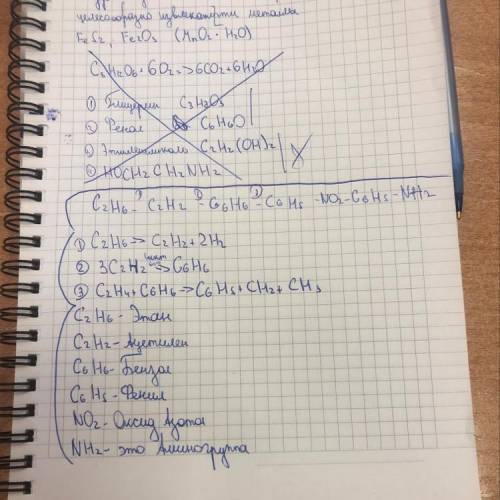 целесообразно извлекать эти металлы
FeS2, Fe2O3 (MnO2 · H2O)
C6H12O6 + 6O2 => 6CO2 + 6H2O
① Глицерин C3H8O3
② Фенол C6H6O
③ Этиленгликоль C2H2(OH)2
④ HOCH2CH2NH2
C2H6 -①- C2H2 -②- C6H6 -③- C6H5 - NO2 - C6H5 - NH2
① C2H6 => C2H2 + 2H2
② 3C2H2 => C6H6
③ C2H4 + C6H6 => C6H5 + CH2 + CH3
C2H6 - Этан
C2H2 - Ацетилен
C6H6 - Бензол
C6H5 - Фенил
NO2 - Оксид Азота
NH2 - это Аминогруппа